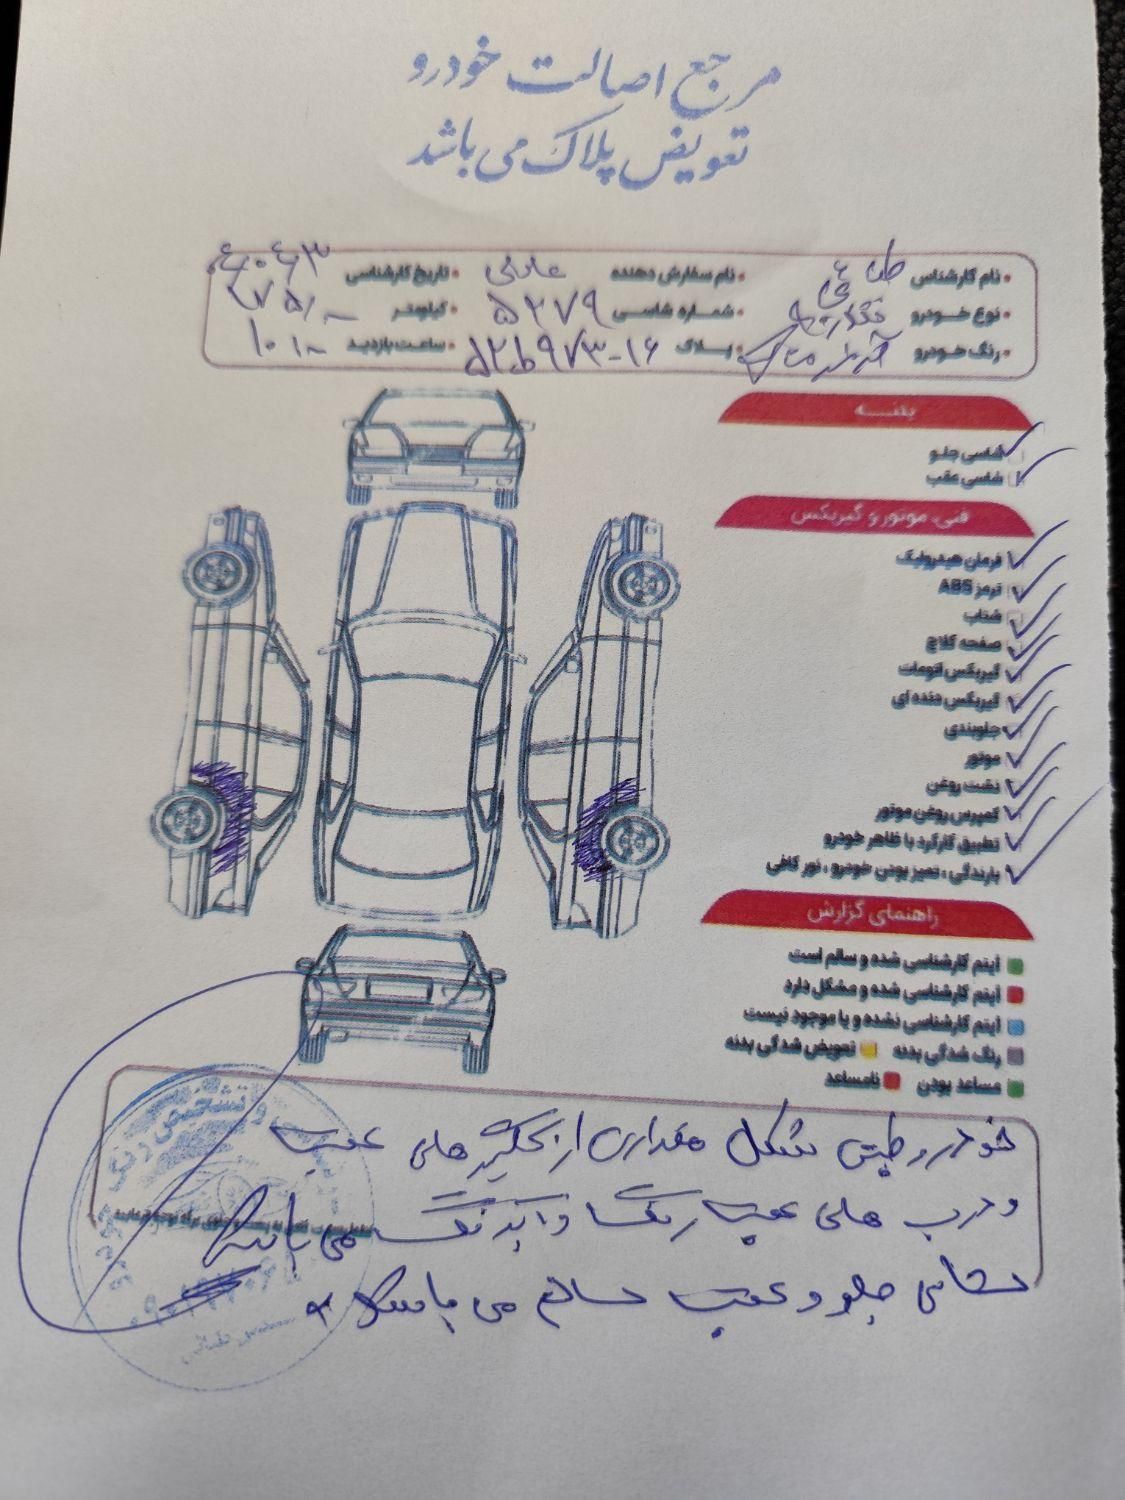 مرجع اصالت خودرو
تعویض پلاک می باشد
• نام کارشناس • نام سفارش دهنده • تاریخ کارشناسی
• نوع خودرو • شماره شاسی ۵۲۷۹ • کیلومتر
• رنگ خودرو • پلاک ۱۶-۹۷۳ ط ۵۲ • ساعت بازدید ۱۰:۱۰
بدنه
شاسی جلو
شاسی عقب
فنی، موتور و گیربکس
فرمان هیدرولیک
ترمز ABS
شتاب
صفحه کلاچ
گیربکس اتومات
گیربکس دنده ای
جلوبندی
موتور
نشت روغن
کمپرس روغن موتور
تطبیق کارکرد با ظاهر خودرو
بارندگی، تمیز بودن خودرو، نور کافی
راهنمای گزارش
آیتم کارشناسی شده و سالم است
آیتم کارشناسی شده و مشکل دارد
آیتم کارشناسی نشده و یا موجود نیست
رنگ شدگی بدنه تعویض شدگی بدنه
مساعد بودن نامساعد
خودرو طبق شکل مقداری از گلگیر های عقب
و درب های عقب رنگ و آبرنگ می باشد
شاسی جلو و عقب سالم می باشد